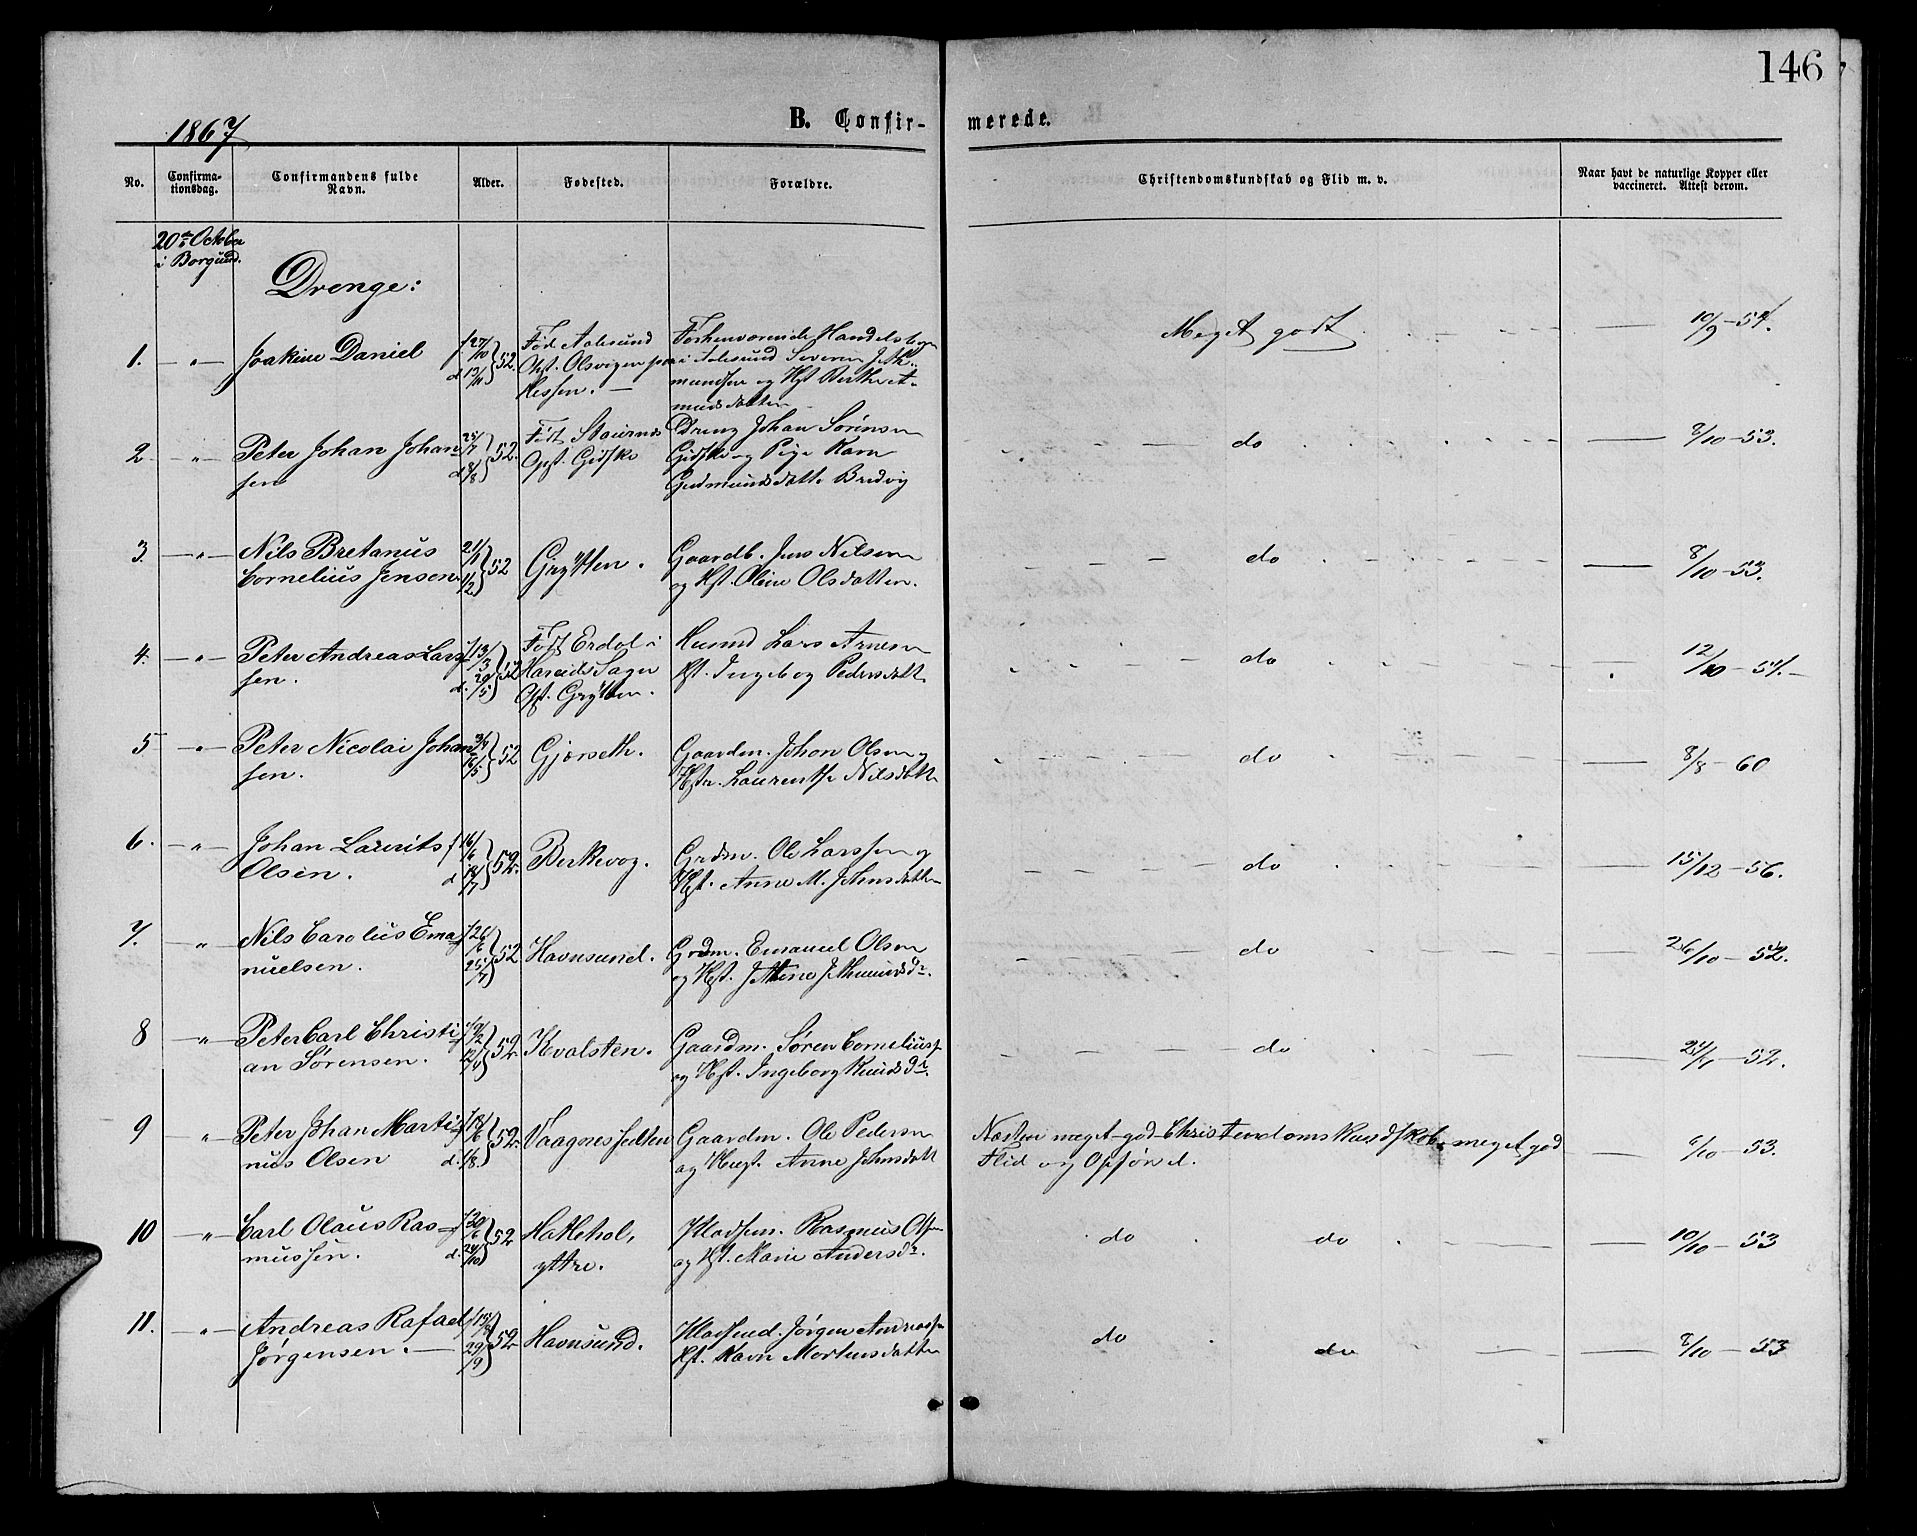 146
1867
B. Confir-
merede.
No.
Confirma-
tionsdag.
Confirmandens fulde
Navn.
Alder.
Fødested.
Forældre.
Christendomskundskab og Flid m. v.
Naar havt de naturlige Kopper eller
vaccineret. Attest derom.
20de October
i Borgund.
Drenge:
1. — " — Joakim Daniel f 27/10 d 13/11 } 52.
Fød Aalesund
Opf. Olsvigen paa
Hessen. —
Forhenværende Handelsborger
i Aalesund Severin
og Hst Berthe
Meget godt — 10/9 – 54.
2 — " — Peter Johan Johan-
sen d 8/8 } 52.
Født Staurnes
Opf. Gidske
Dreng Johan Sørensen
Gidske og Pige Karn
Gudmundsdatter Bredvig
do — 8/10 – 53.
3. — " — Nils Bretanus
Cornelius Jensen. 21/1 1/2 } 52
Grytten.
Gaardb. Jens Nilsen
og Hst. Oline Olsdatter.
do — 8/10 – 53.
4. — " — Peter Andreas Lars-
sen. f 13/3 d. 20/5 } 52
Født Erdal i
Hareids Sogn
Opf. Grytten.
Husmd Lars Arnesen
Hst. Ingeborg Pedersdatt
do — 12/10 – 54. –
5 — " — Peter Nicolai Johan-
sen. 16/5 } 52
Gjørseth.
Gaardm. Johan Olsen og
Hstr. Laurentse Nilsdatt
do — 8/8 – 60
6. — " — Johan Laurits
Olsen. f 16/6 d 18/7 } 52.
Birkevog.
Grdm. Ole Larssen og
Hst. Anne M. Johnsdatter
do — 15/12 – 56.
7. — " — Nils Carolius Ema-
nuelsen. f 26/6 25/7 } 52
Havnsund.
Grdm. Emanuel Olsen
og Hst.
do — 26/10 – 52.
8 — " — Peter Carl Christi-
an Sørensen. 12/4 } 52
Kvalsten.
Gaardm. Søren Corneliuss
og Hst. Ingeborg Knudsdr.
do — 52.
9 — " — Peter Johan Marti-
nus Olsen f 18/6 d. 1/8. } 52
Vaagnes
Gaardm. Ole Pedersen
og Hust. Anne Johnsdatt
Næsten meget god Christendomskundskab, meget god
Flid og Opførsel.
— 53.
10 — " — Carl Olaus Ras-
mussen. f 20/6 d. 24/10 } 52
Hattehol,
yttre.
Pladsm. Rasmus Olsen
og Hst. Marie Andersdr.
do do — 10/10 – 53
11. — " — Andreas Rafael
Jørgensen. — f 15/8 29/9 } 52
Havnsund.
Pladsmd. Jørgen Andreass
Hst. Karn Mortensdatter
do do — 8/10 – 53